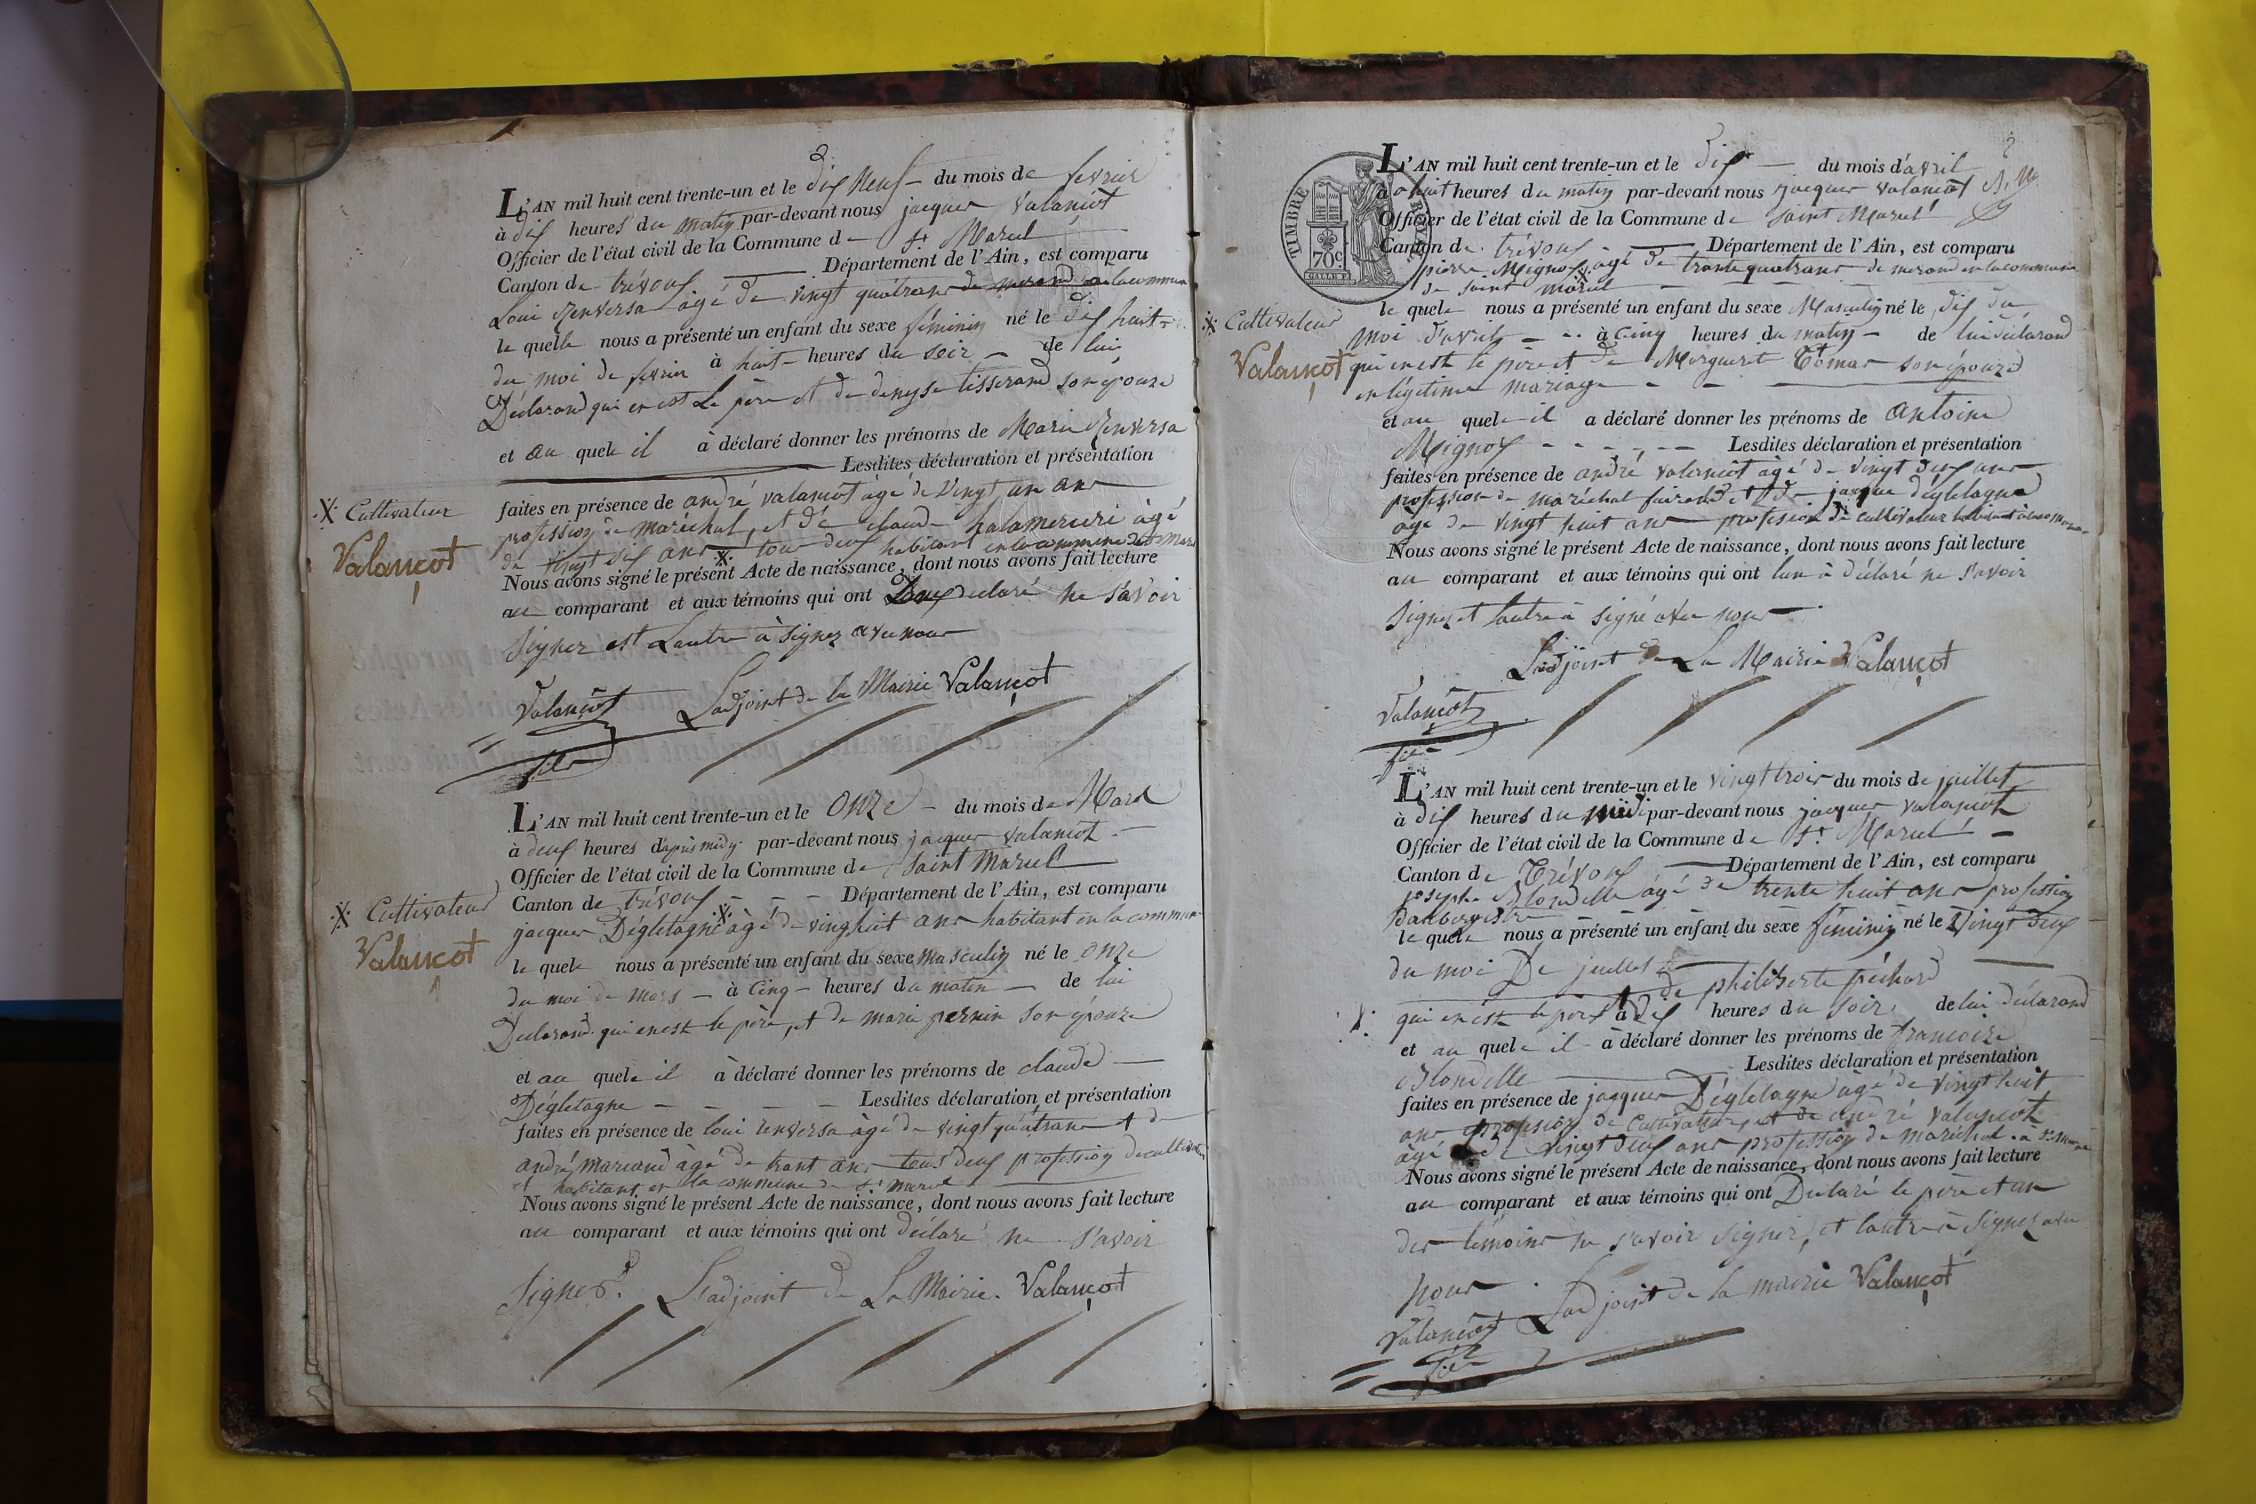 2
L'AN mil huit cent trente-un et le dix Neuf du mois de fevrier
à dix heures du matin par-devant nous jacques Valançot
Officier de l'état civil de la Commune de St Marcel
Canton de trévoux Département de l'Ain, est comparu
Loui Renversa agé de vingt quatrans de la commune
le quelle nous a présenté un enfant du sexe féminin né le dix huit
du moi de fevrier à huit heures du soir de lui
Déclarand qui en est Le père et de denyse tisserand son épouze
et au quele il à déclaré donner les prénoms de Marie Renversa
Lesdites déclaration et présentation
faites en présence de andré valancot àgé de Vingt un ans
profession de maréchal, et de claude àgé
X Cultivateur
Valançot
de vingt dix ans X tous deux habitant en la commune de St Marcel
Nous avons signé le présent Acte de naissance, dont nous avons fait lecture
au comparant et aux témoins qui ont declaré ne s'avoir
signer est Lautre à signez avec nous
Valançot fils Ladjoint de la Mairie Valançot
L'AN mil huit cent trente-un et le onze du mois de Mars
à deux heures d'après midy par-devant nous jacques valancot
Officier de l'état civil de la Commune de Saint Marcel
Canton de trévoux Département de l'Ain, est comparu
X Cultivateur
Valançot
jacques Dégletagne X àgé de vinghuit ans habitant en la commune
le quele nous a présenté un enfant du sexe masculin né le onze
du moi de mars à Cinq heures du matin de lui
Declarand qui en est le père, et de marie pernin son épouze
et au quele il à déclaré donner les prénoms de claude
Dégletagne Lesdites déclaration et présentation
faites en présence de loui renversa àgé de vingt quatrans et de
andré marcand àgé de trant ans tous deux profession de cultivateur
et habitant en la commune de St marcel
Nous avons signé le présent Acte de naissance, dont nous avons fait lecture
au comparant et aux témoins qui ont déclaré ne s'avoir
Signer. Ladjoint de La Mairie. Valançot
2
TIMBRE ROYAL
70c
L'AN mil huit cent trente-un et le dix du mois d'avril
à huit heures du matin par-devant nous jacques valancot
Officier de l'état civil de la Commune de Saint Marcel
Canton de trévoux Département de l'Ain, est comparu
pierre Mignot X agé de trante quatrans de en la commune
de saint marcel
le quele nous a présenté un enfant du sexe Masculin né le dix du
X Cultivateur
Valançot
moi d'avril à Cinq heures du matin de lui déclarand
qui en est le père et de Marguerit tomas son épouze
en légitime mariage
et au quele il a déclaré donner les prénoms de antoine
Mignot Lesdites déclaration et présentation
faites en présence de andré valancot àgé de vingt deux ans
profession de maréchal et de jacque déglétagne
àgé de vingt huit ans profession de cultivateur
Nous avons signé le présent Acte de naissance, dont nous avons fait lecture
au comparant et aux témoins qui ont lun à déclaré ne s'avoir
signer et lautre à signé avec nous
Ladjoint de La Mairie Valançot
Valancot fils
L'AN mil huit cent trente-un et le vingt trois du mois de juillet
à dix heures du midi par-devant nous jacques valancot
Officier de l'état civil de la Commune de St Marcel
Canton de Trévoux Département de l'Ain, est comparu
joseph Blondelle àgé de trente huit ans profession
daubergiste
le quele nous a présenté un enfant du sexe féminin né le Vingt deux
du moi De juillet
et de philiberte fréchard
qui en est le père à dix heures du soir de lui déclarand
et au quele il à déclaré donner les prénoms de francoize
Blondelle Lesdites déclaration et présentation
faites en présence de jacques Déglétagne àgé de vingt huit
ans profession de Cultivateur, et de andré valancot
àgé de vingt deux ans profession de maréchal à St Marcel
Nous avons signé le présent Acte de naissance, dont nous avons fait lecture
au comparant et aux témoins qui ont Declaré le père et un
des témoins ne s'avoir signer, et lautre à signez avec
nous Ladjoint de la mairie Valançot
Valancot fils